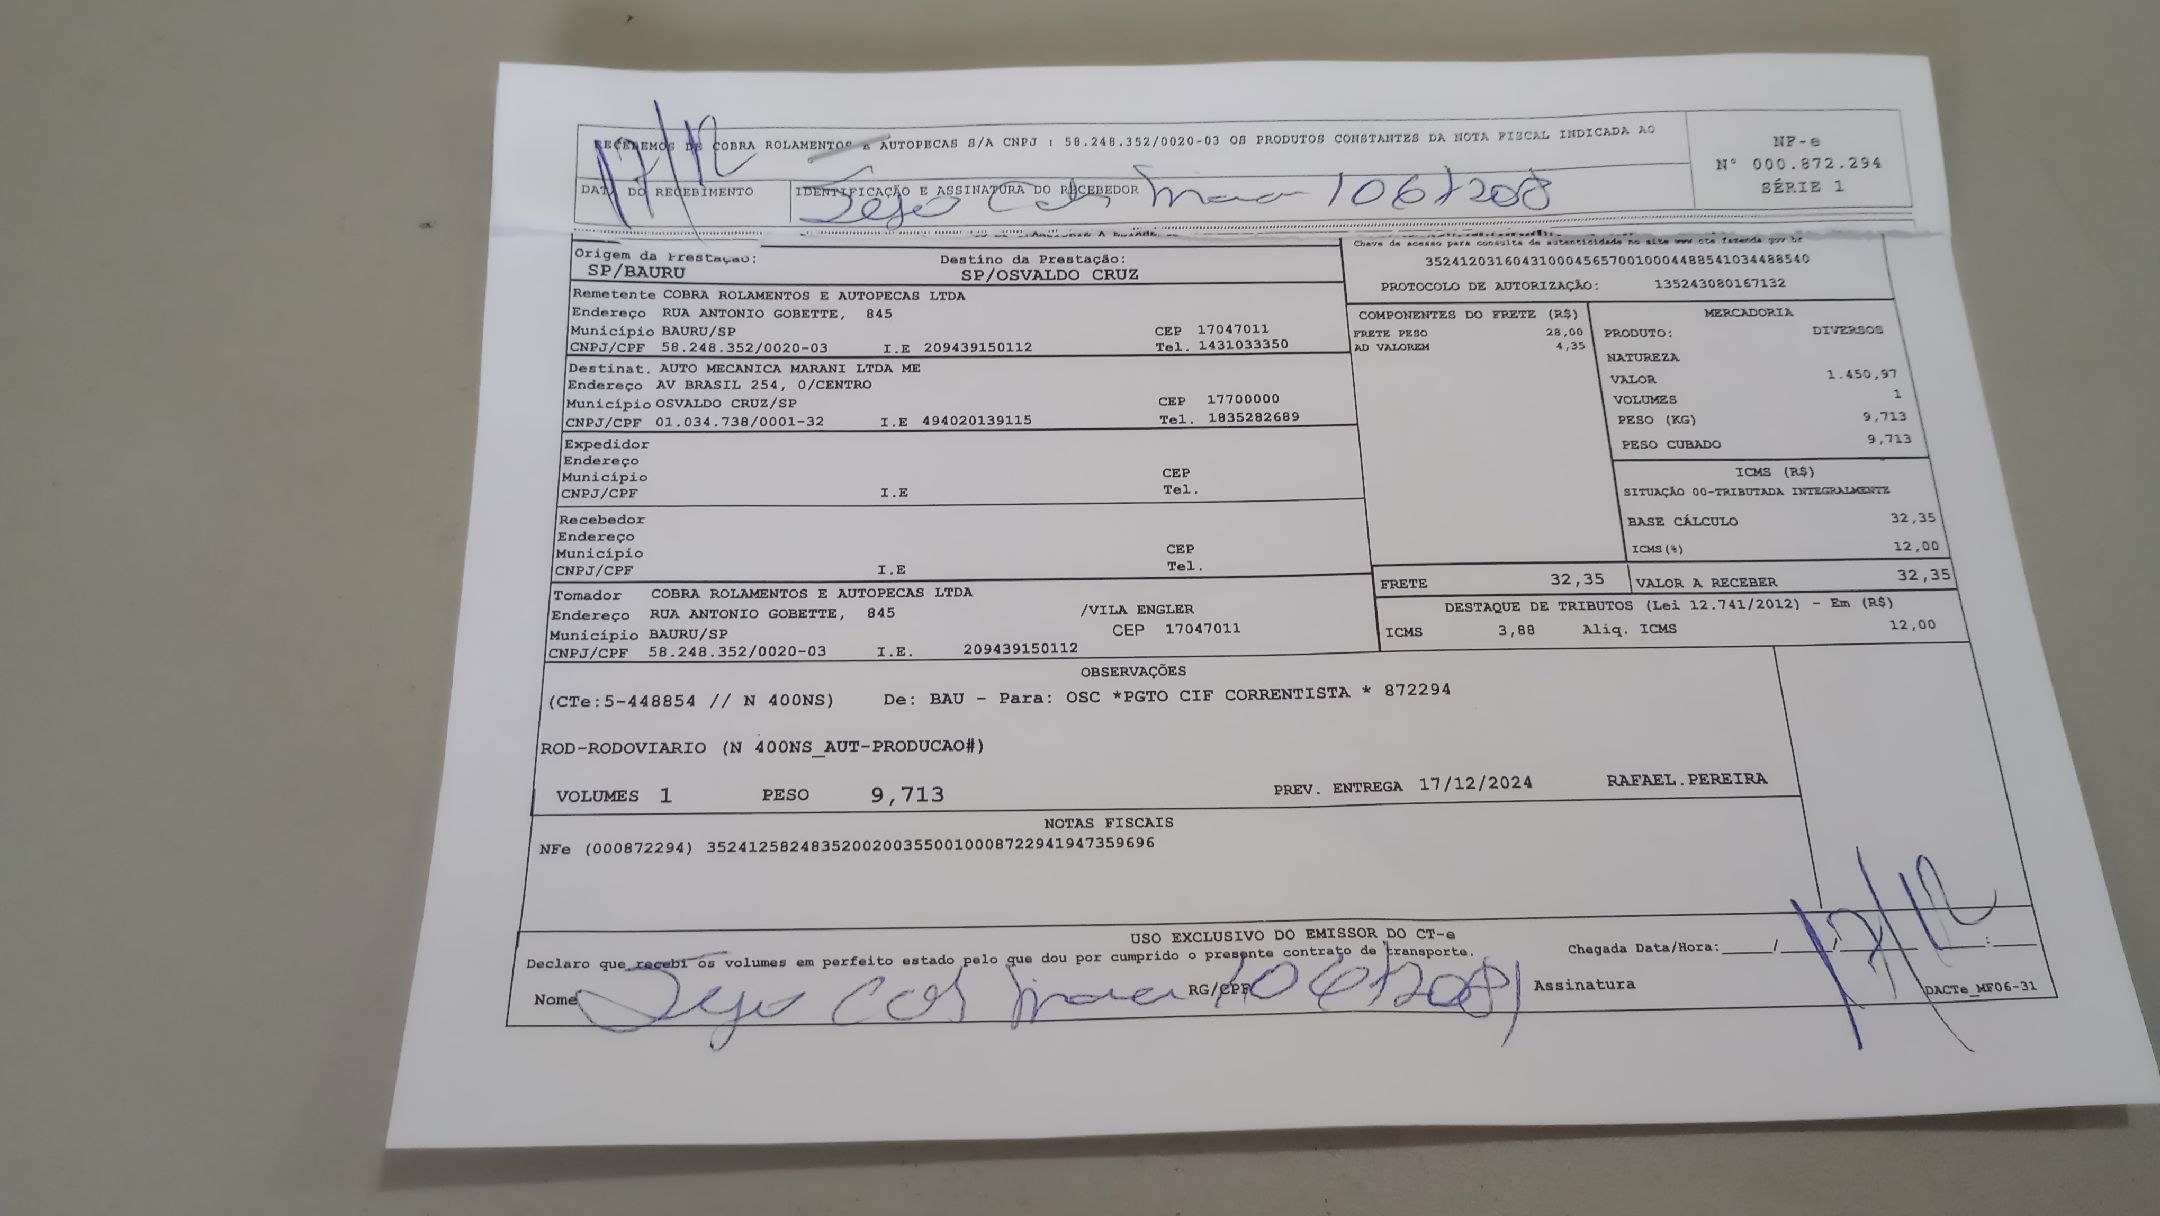 RECEBEMOS DE COBRA ROLAMENTOS E AUTOPECAS S/A CNPJ : 58.248.352/0020-03 OS PRODUTOS CONSTANTES DA NOTA FISCAL INDICADA AO
17/12
DATA DO RECEBIMENTO
IDENTIFICAÇÃO E ASSINATURA DO RECEBEDOR
NF-e
N° 000.872.294
SÉRIE 1
Origem da Prestação:
SP/BAURU
Destino da Prestação:
SP/OSVALDO CRUZ
Chave de acesso para consulta de autenticidade no site www cte fazenda gov br
35241203160431000456570010004488541034488540
PROTOCOLO DE AUTORIZAÇÃO: 135243080167132
Remetente COBRA ROLAMENTOS E AUTOPECAS LTDA
Endereço RUA ANTONIO GOBETTE, 845
Município BAURU/SP CEP 17047011
CNPJ/CPF 58.248.352/0020-03 I.E 209439150112 Tel. 1431033350
Destinat. AUTO MECANICA MARANI LTDA ME
Endereço AV BRASIL 254, 0/CENTRO
Município OSVALDO CRUZ/SP CEP 17700000
CNPJ/CPF 01.034.738/0001-32 I.E 494020139115 Tel. 1835282689
Expedidor
Endereço
Município CEP
CNPJ/CPF I.E Tel.
Recebedor
Endereço
Município CEP
CNPJ/CPF I.E Tel.
Tomador COBRA ROLAMENTOS E AUTOPECAS LTDA
Endereço RUA ANTONIO GOBETTE, 845 /VILA ENGLER
Município BAURU/SP CEP 17047011
CNPJ/CPF 58.248.352/0020-03 I.E. 209439150112
COMPONENTES DO FRETE (R$)
FRETE PESO 28,00
AD VALOREM 4,35
MERCADORIA
PRODUTO: DIVERSOS
NATUREZA
VALOR 1.450,97
VOLUMES 1
PESO (KG) 9,713
PESO CUBADO 9,713
ICMS (R$)
SITUAÇÃO 00-TRIBUTADA INTEGRALMENTE
BASE CÁLCULO 32,35
ICMS(%) 12,00
FRETE 32,35 VALOR A RECEBER 32,35
DESTAQUE DE TRIBUTOS (Lei 12.741/2012) - Em (R$)
ICMS 3,88 Aliq. ICMS 12,00
OBSERVAÇÕES
(CTe:5-448854 // N 400NS) De: BAU - Para: OSC *PGTO CIF CORRENTISTA * 872294
ROD-RODOVIARIO (N 400NS_AUT-PRODUCAO#)
VOLUMES 1 PESO 9,713 PREV. ENTREGA 17/12/2024 RAFAEL.PEREIRA
NOTAS FISCAIS
NFe (000872294) 35241258248352002003550010008722941947359696
USO EXCLUSIVO DO EMISSOR DO CT-e
Declaro que recebi os volumes em perfeito estado pelo que dou por cumprido o presente contrato de transporte.
Chegada Data/Hora:____/____/____ ____:____
17/12
Nome RG/CPF Assinatura
DACTe_MF06-31